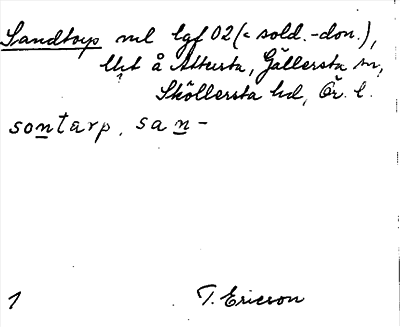 Sandtorp nul lgf 02 (< sold.-don.),
lht å Attersta, Gällersta sn,
Sköllersta hd, Ör. l.
sontarp, san-
1 T. Ericson